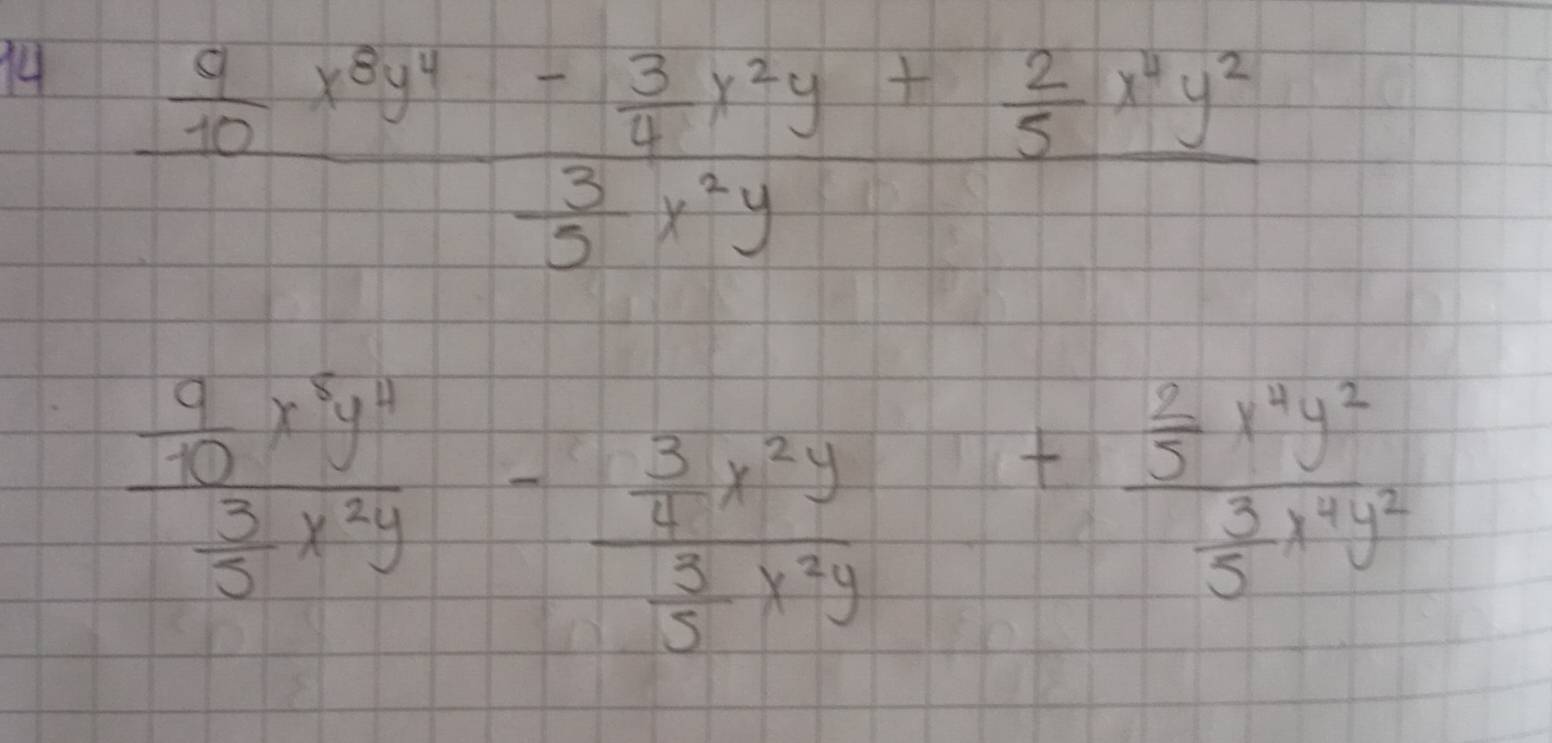 14 9/10 x⁸y⁴ - 3/4 x²y + 2/5 x⁴y²
3/5 x²y
9/10 x⁸y⁴ - 3/4 x²y + 2/5 x⁴y²
3/5 x²y 3/5 x²y 3/5 x⁴y²